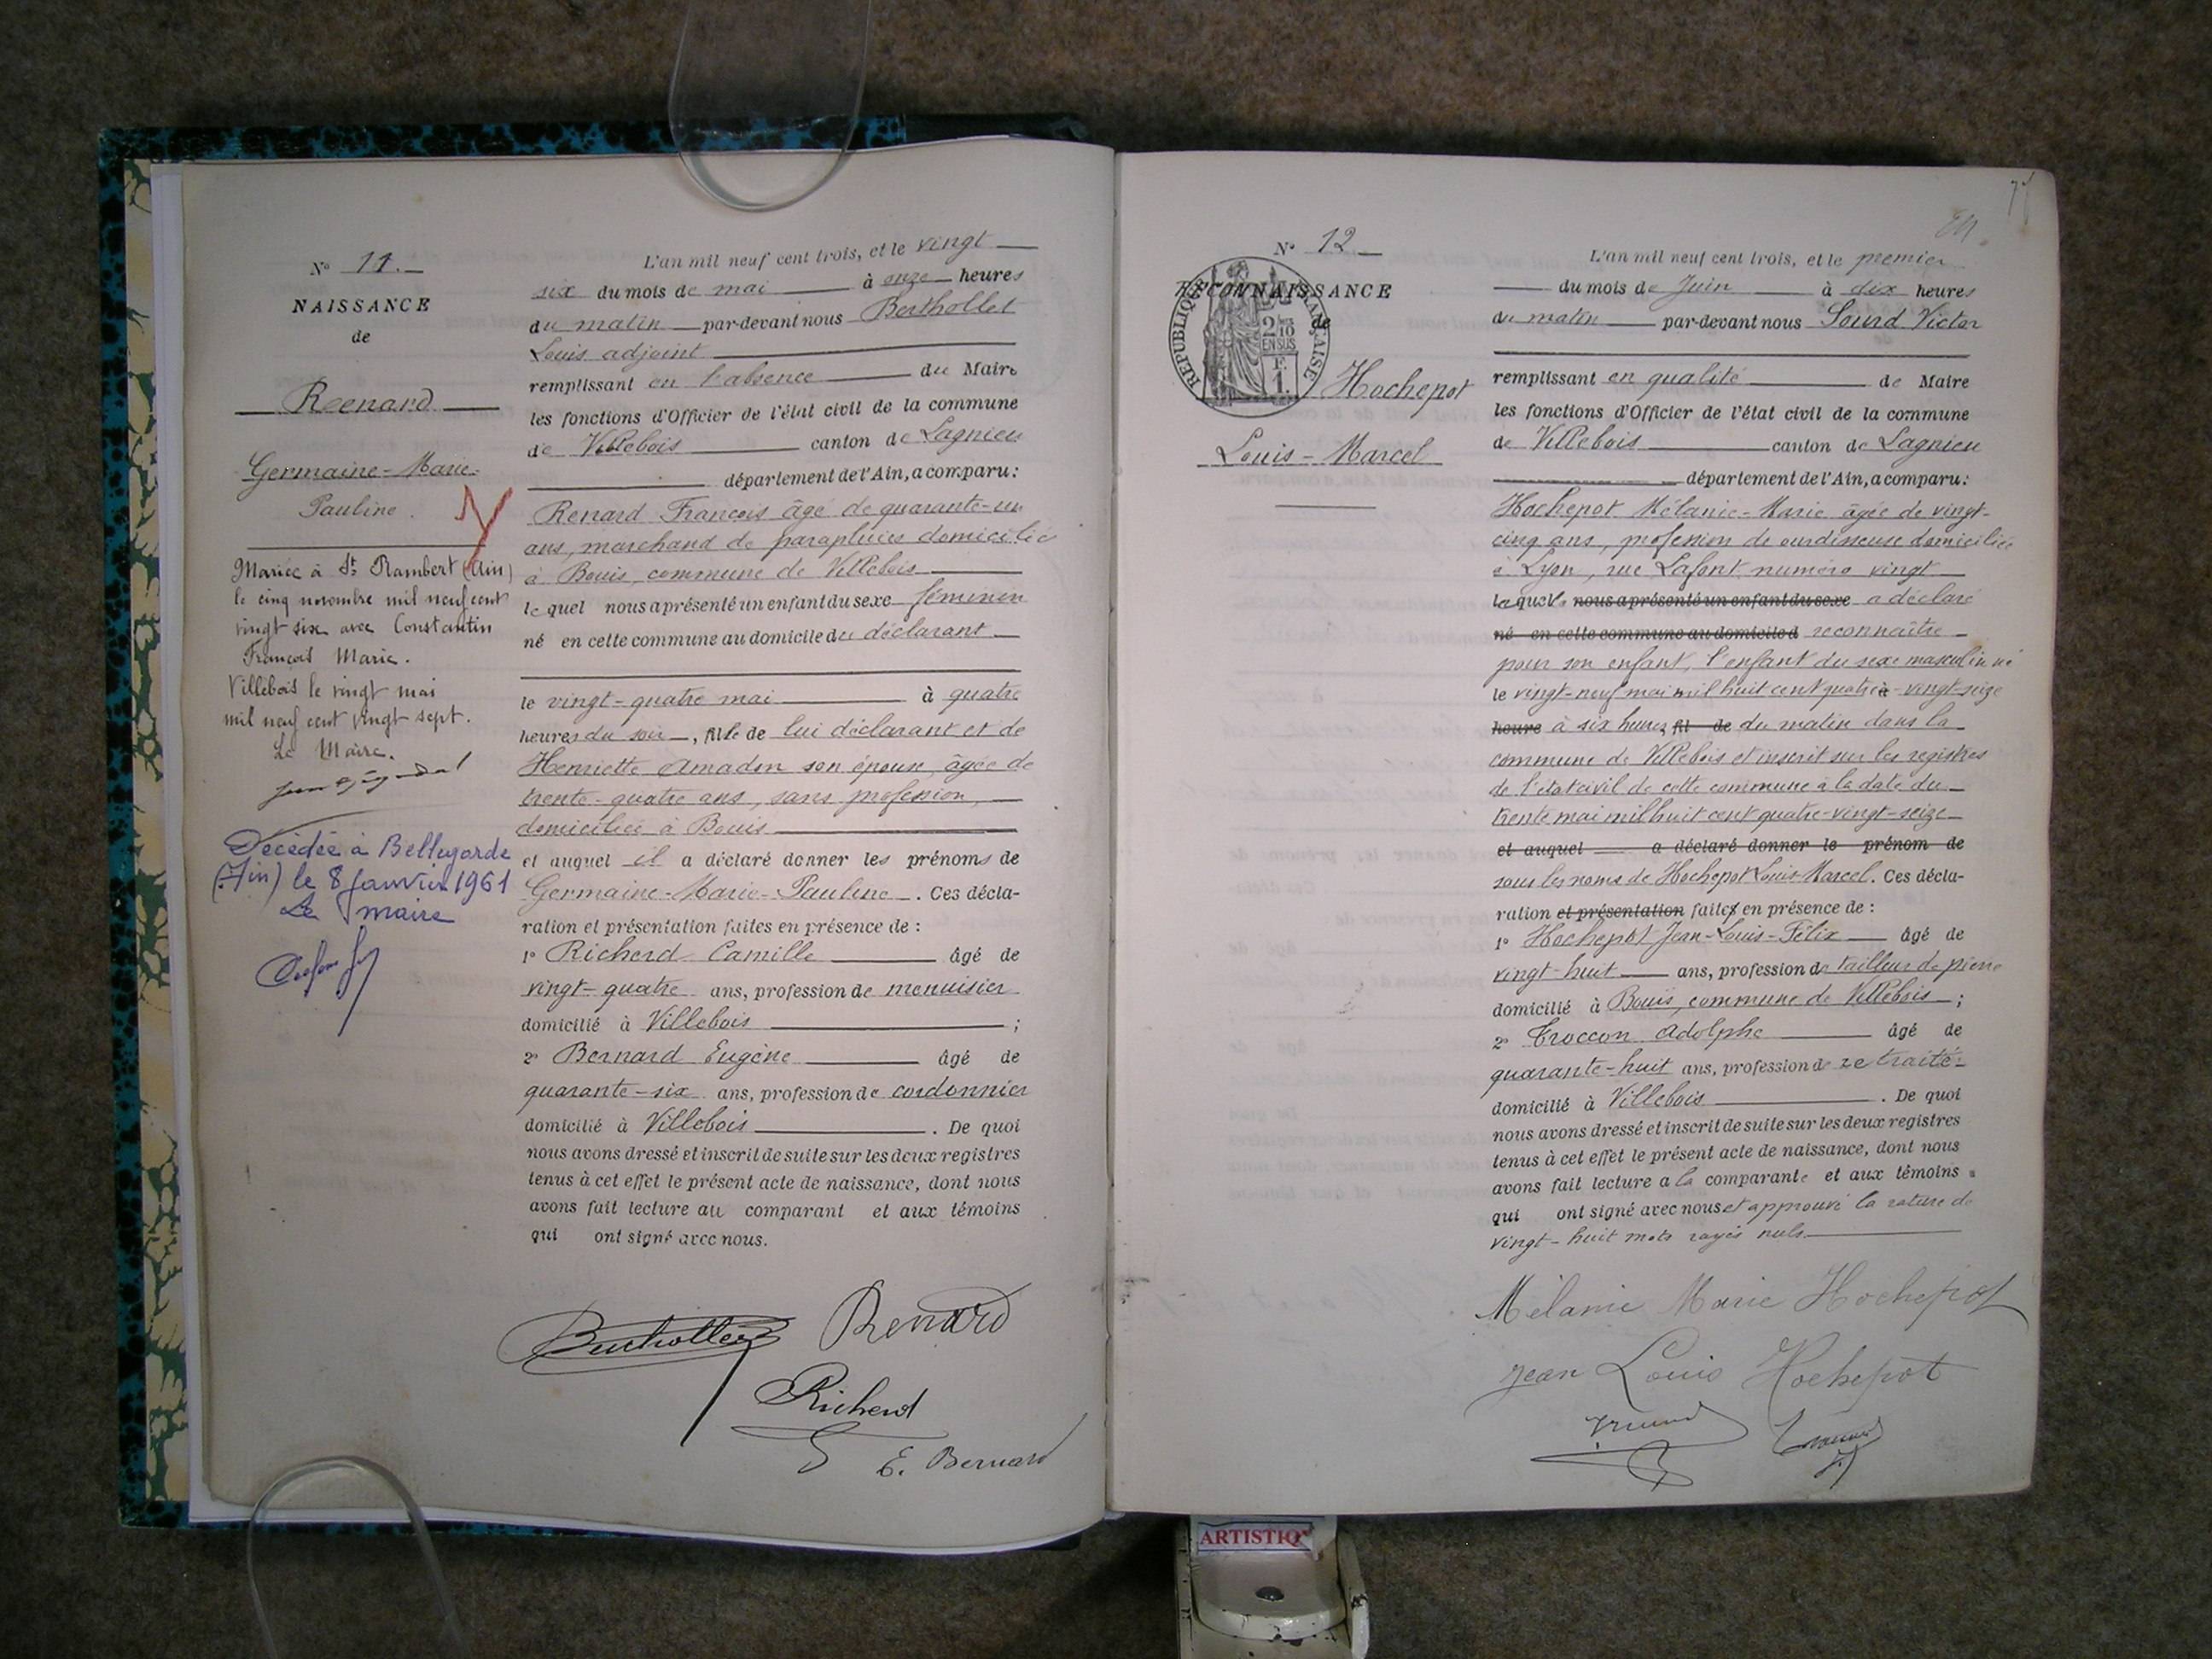 Nº 11.
NAISSANCE
de
Renard
Germaine-Marie-
Pauline.
Mariée à St Rambert (Ain)
le cinq novembre mil neuf cent
vingt six avec Constantin
François Marie.
Villebois le vingt mai
mil neuf cent vingt sept.
Le Maire.
Décédée à Bellegarde
(Ain) le 8 janvier 1961
Le maire
L'an mil neuf cent trois, et le vingt
six du mois de mai à onze heures
du matin par-devant nous Berthollet
Louis adjoint
remplissant en l'absence du Maire
les fonctions d'Officier de l'état civil de la commune
de Villebois canton de Lagnieu
département de l'Ain, a comparu:
Renard François âgé de quarante-un
ans, marchand de parapluies domicilié
à Bouis, commune de Villebois
lequel nous a présenté un enfant du sexe féminin
né en cette commune au domicile du déclarant
le vingt-quatre mai à quatre
heures du soir, fille de lui déclarant et de
Henriette Amadon son épouse, âgée de
trente-quatre ans, sans profession,
domiciliée à Bouis
et auquel il a déclaré donner les prénoms de
Germaine-Marie-Pauline. Ces décla-
ration et présentation faites en présence de :
1º Richerd Camille âgé de
vingt-quatre ans, profession de menuisier
domicilié à Villebois ;
2º Bernard Eugène âgé de
quarante-six ans, profession de cordonnier
domicilié à Villebois . De quoi
nous avons dressé et inscrit de suite sur les deux registres
tenus à cet effet le présent acte de naissance, dont nous
avons fait lecture au comparant et aux témoins
qui ont signé avec nous.
Berthollet Renard
Richerd
E. Bernard
Nº 12
RECONNAISSANCE
de
RÉPUBLIQUE FRANÇAISE
2/10 EN SUS
F.
1.
Hochepot
Louis-Marcel
L'an mil neuf cent trois, et le premier
du mois de Juin à dix heures
du matin par-devant nous Sourd Victor
remplissant en qualité de Maire
les fonctions d'Officier de l'état civil de la commune
de Villebois canton de Lagnieu
département de l'Ain, a comparu:
Hochepot Mélanie-Marie âgée de vingt-
cinq ans, profession de ourdisseuse domiciliée
à Lyon, rue Lafont numéro vingt
laquelle nous a présenté un enfant du sexe a déclaré
né en cette commune au domicile d reconnaître
pour son enfant, l'enfant du sexe masculin né
le vingt-neuf mai mil huit cent quatre à -vingt-seize
heure à six heures fil de du matin dans la
commune de Villebois et inscrit sur les registres
de l'état civil de cette commune à la date du
trente mai mil huit cent quatre-vingt-seize
et auquel a déclaré donner le prénom de
sous les noms de Hochepot Louis-Marcel. Ces décla-
ration et présentation faites en présence de :
1º Hochepot Jean-Louis-Félix âgé de
vingt-huit ans, profession de tailleur de pierre
domicilié à Bouis, commune de Villebois ;
2º Troccon Adolphe âgé de
quarante-huit ans, profession de retraité
domicilié à Villebois . De quoi
nous avons dressé et inscrit de suite sur les deux registres
tenus à cet effet le présent acte de naissance, dont nous
avons fait lecture a la comparante et aux témoins
qui ont signé avec nous et approuvé la rature de
vingt-huit mots rayés nuls.
Mélanie Marie Hochepot
Jean Louis Hochepot
ARTISTIQ